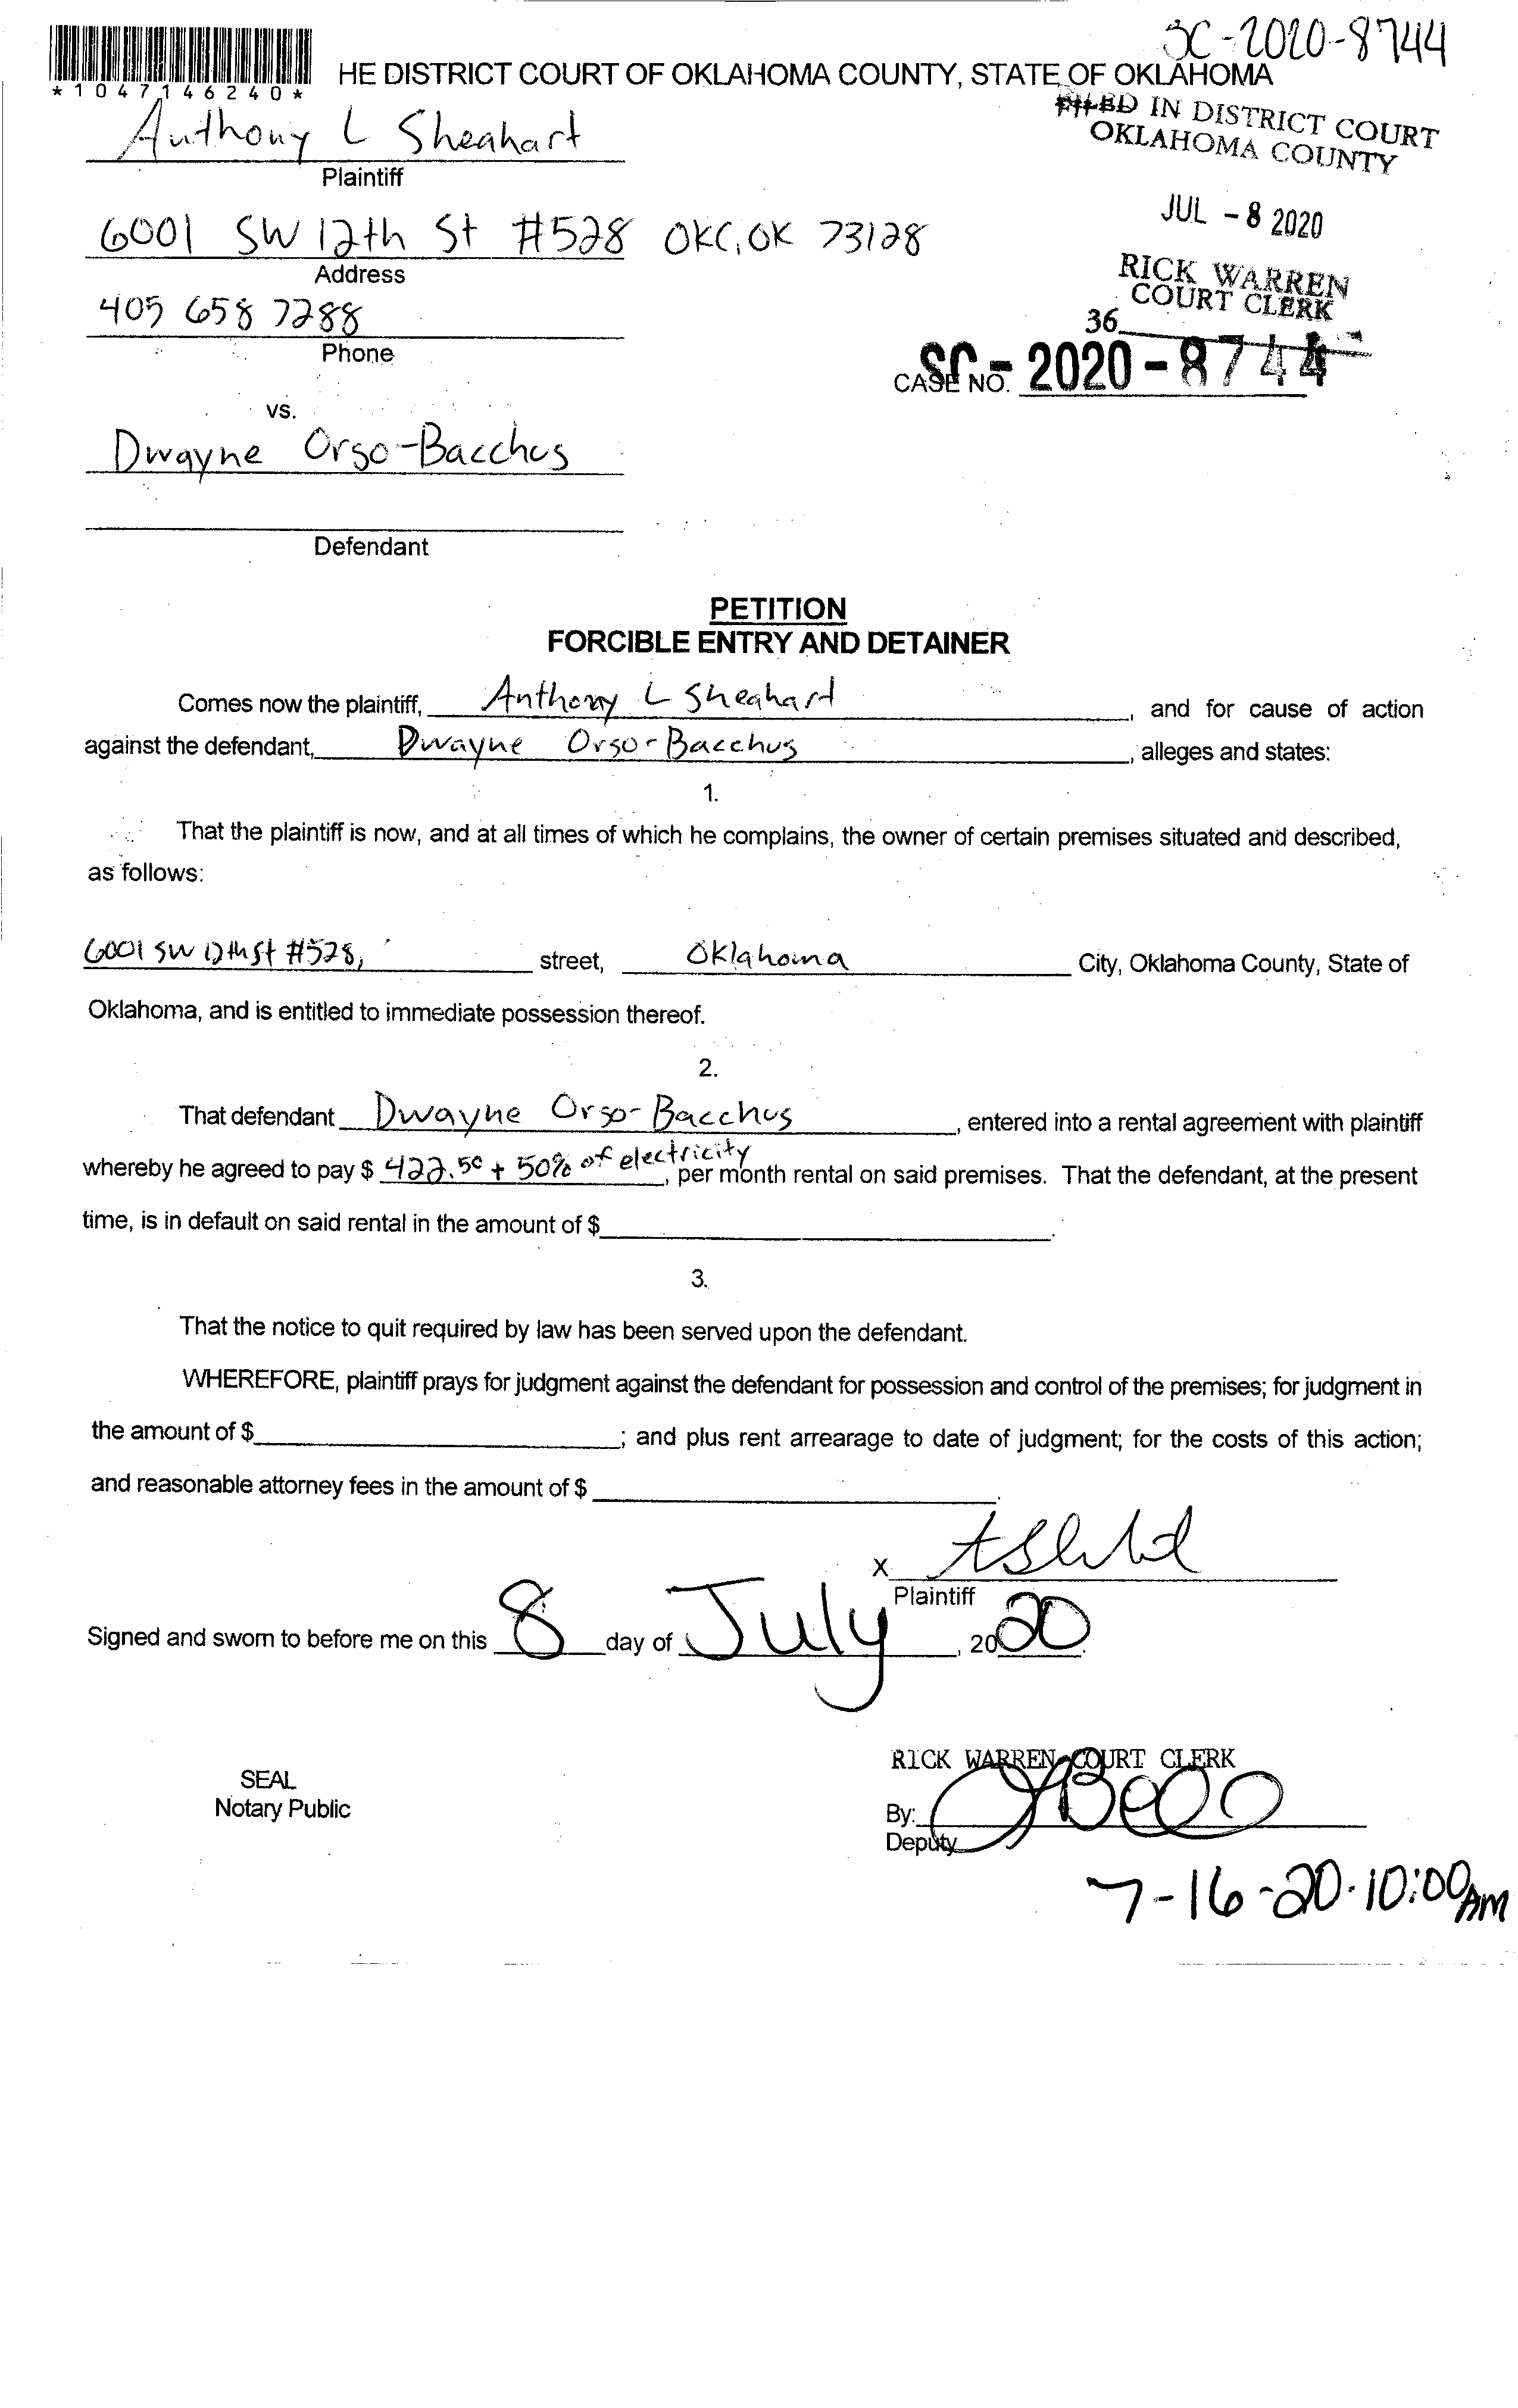 SC-2020-8744
HE DISTRICT COURT OF OKLAHOMA COUNTY, STATE OF OKLAHOMA
*1047146240*
FILED IN DISTRICT COURT
OKLAHOMA COUNTY
Anthony L Sheahart
Plaintiff
JUL - 8 2020
6001 SW 12th St #528 OKC, OK 73128
Address
RICK WARREN
COURT CLERK
405 658 7288
36
Phone
CASE NO. SC - 2020 - 8744
vs.
Dwayne Orso-Bacchus
Defendant
PETITION
FORCIBLE ENTRY AND DETAINER
Comes now the plaintiff, Anthony L Sheahart, and for cause of action
against the defendant, Dwayne Orso-Bacchus, alleges and states:
1.
That the plaintiff is now, and at all times of which he complains, the owner of certain premises situated and described,
as follows:
6001 SW 12th St #528, street, Oklahoma City, Oklahoma County, State of
Oklahoma, and is entitled to immediate possession thereof.
2.
That defendant Dwayne Orso-Bacchus, entered into a rental agreement with plaintiff
whereby he agreed to pay $ 422.50 + 50% of electricity, per month rental on said premises. That the defendant, at the present
time, is in default on said rental in the amount of $ .
3.
That the notice to quit required by law has been served upon the defendant.
WHEREFORE, plaintiff prays for judgment against the defendant for possession and control of the premises; for judgment in
the amount of $ ; and plus rent arrearage to date of judgment; for the costs of this action;
and reasonable attorney fees in the amount of $ .
X
Plaintiff
Signed and sworn to before me on this 8 day of July, 2020.
RICK WARREN COURT CLERK
SEAL
Notary Public
By:
Deputy
7-16-20·10:00AM